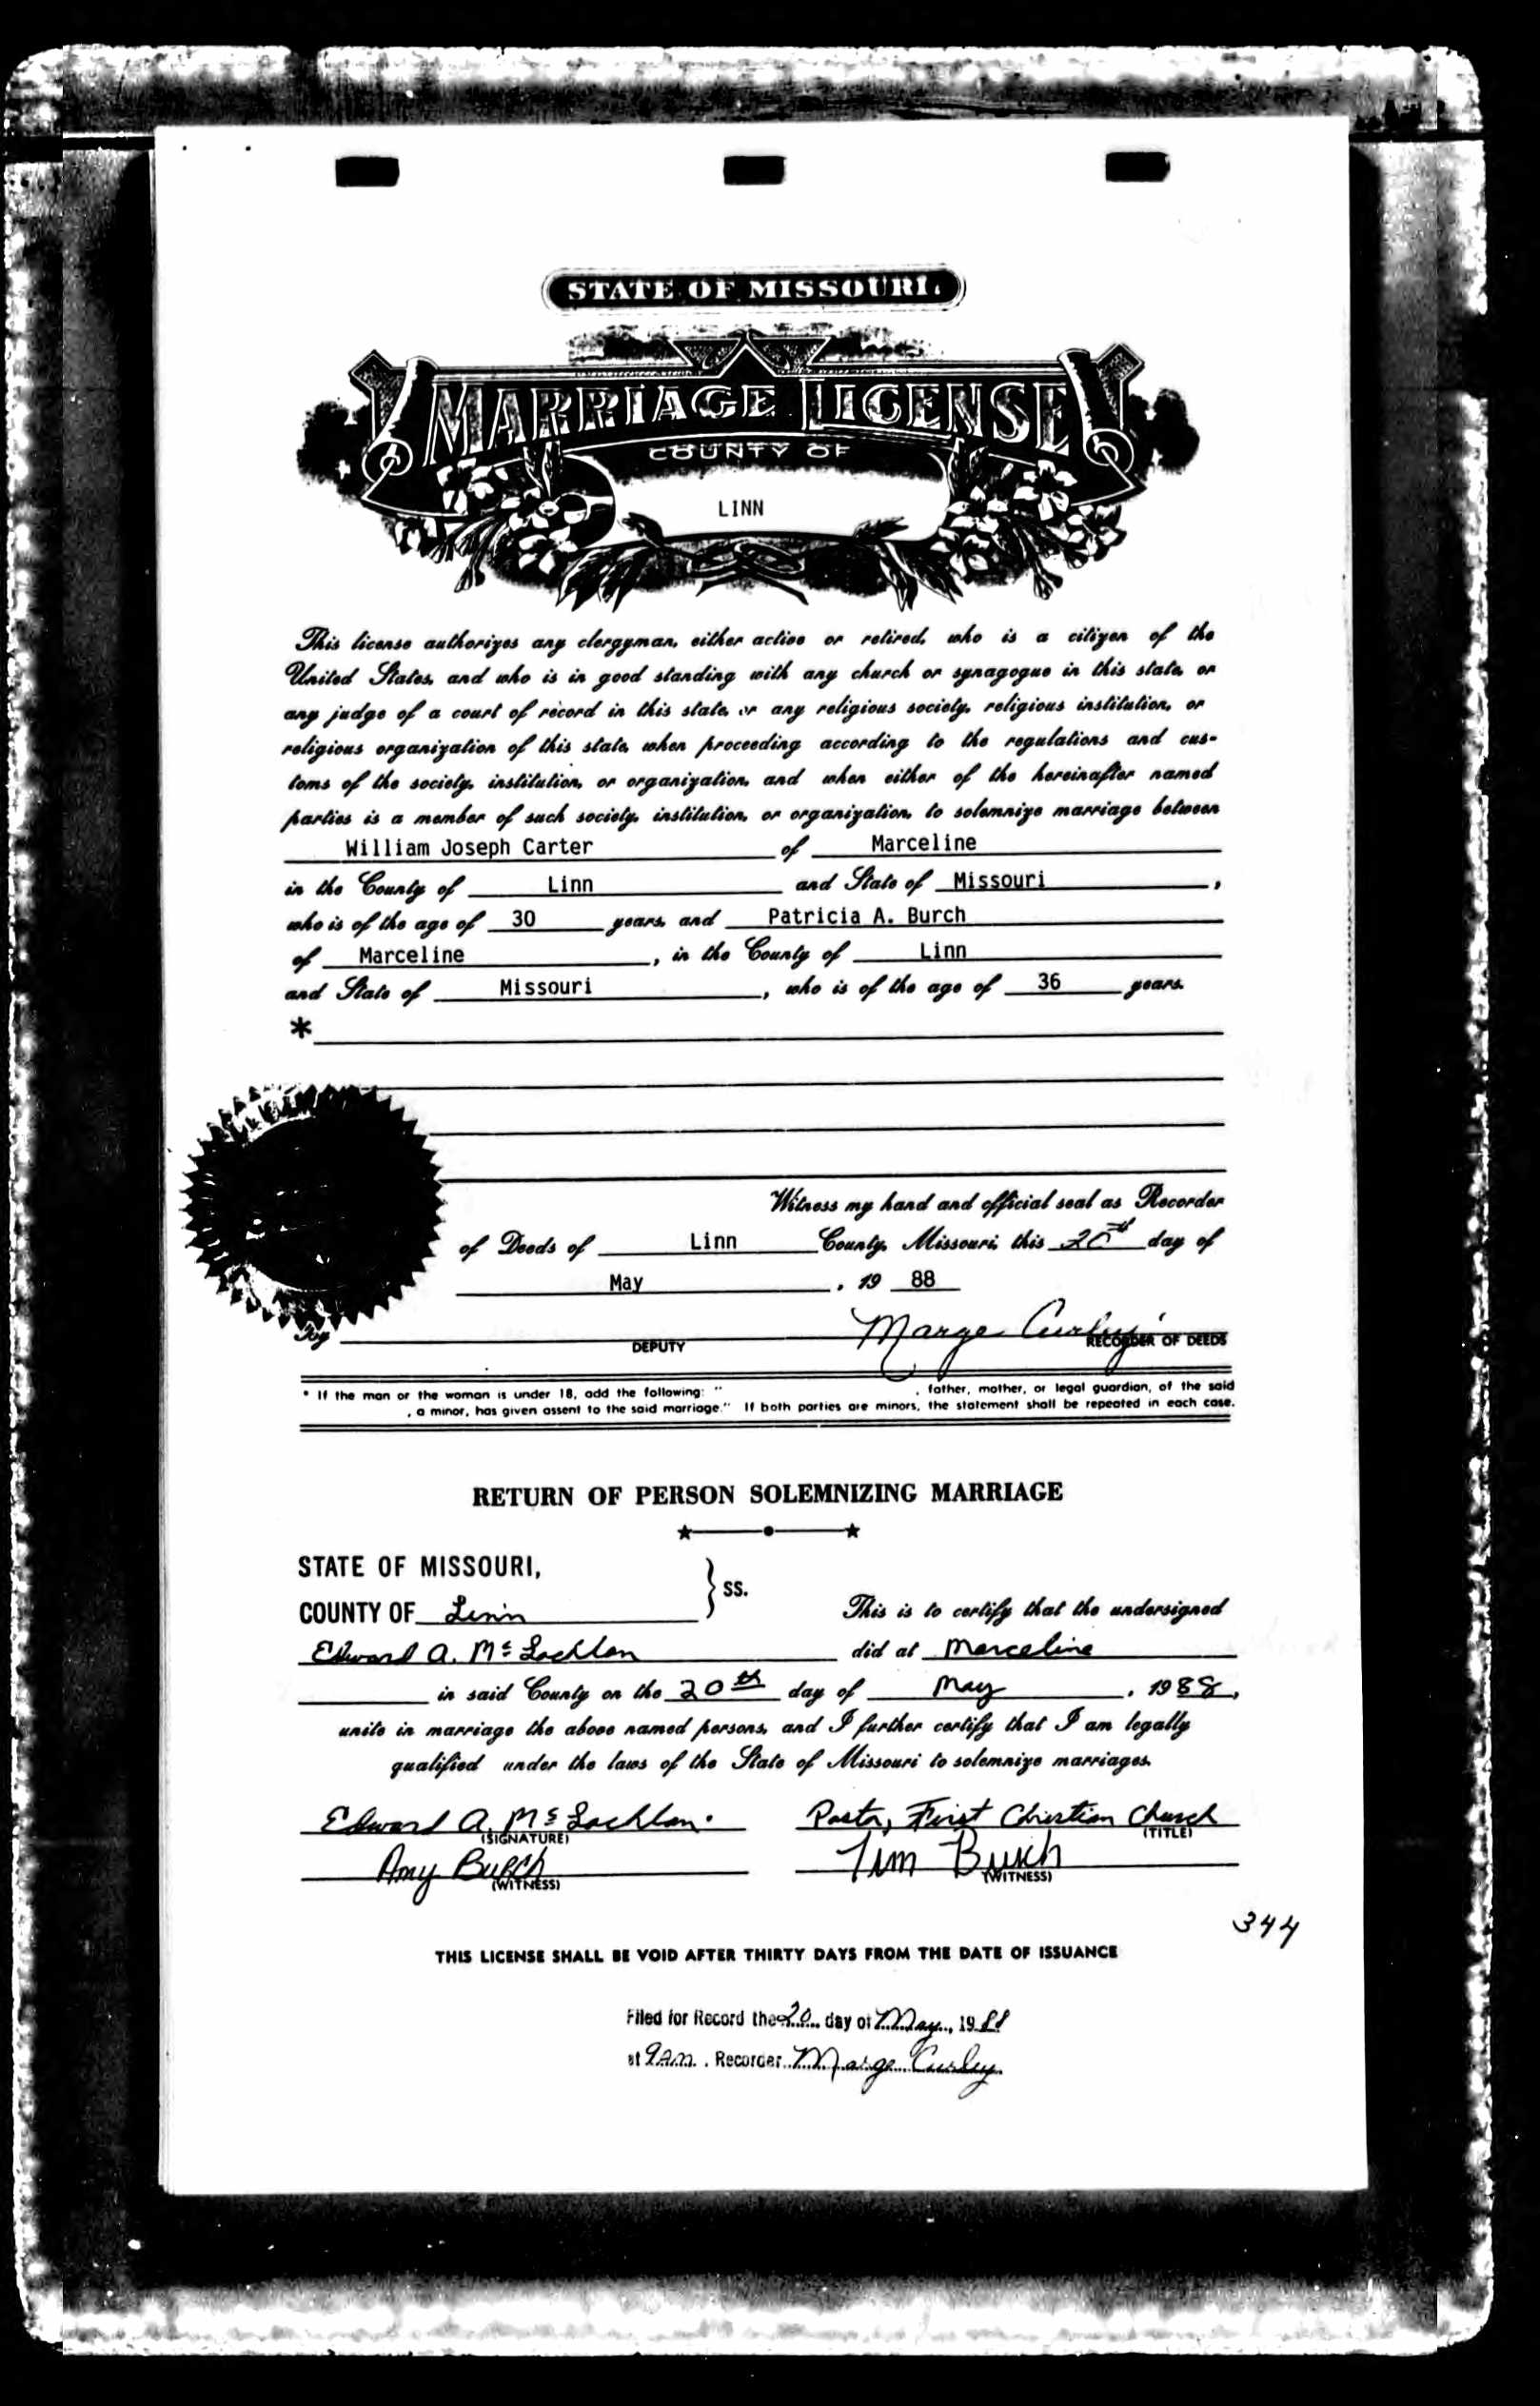 STATE OF MISSOURI.
MARRIAGE LICENSE
COUNTY OF
LINN
This license authorizes any clergyman, either active or retired, who is a citizen of the
United States, and who is in good standing with any church or synagogue in this state, or
any judge of a court of record in this state, or any religious society, religious institution, or
religious organization of this state, when proceeding according to the regulations and cus-
toms of the society, institution, or organization, and when either of the hereinafter named
parties is a member of such society, institution, or organization, to solemnize marriage between
William Joseph Carter of Marceline
in the County of Linn and State of Missouri,
who is of the age of 30 years, and Patricia A. Burch
of Marceline, in the County of Linn
and State of Missouri, who is of the age of 36 years.
*
Witness my hand and official seal as Recorder
of Deeds of Linn County, Missouri, this 20th day of
May, 19 88
By Marge Curley
DEPUTY RECORDER OF DEEDS
* If the man or the woman is under 18, add the following: " , father, mother, or legal guardian, of the said
, a minor, has given assent to the said marriage." If both parties are minors, the statement shall be repeated in each case.
RETURN OF PERSON SOLEMNIZING MARRIAGE
STATE OF MISSOURI,
} SS.
COUNTY OF Linn This is to certify that the undersigned
Edward A. McLachlan did at Marceline
in said County on the 20th day of May, 1988,
unite in marriage the above named persons, and I further certify that I am legally
qualified under the laws of the State of Missouri to solemnize marriages.
Edward A. McLachlan. Pastor, First Christian Church
(SIGNATURE) (TITLE)
Amy Burch Tim Burch
(WITNESS) (WITNESS)
344
THIS LICENSE SHALL BE VOID AFTER THIRTY DAYS FROM THE DATE OF ISSUANCE
Filed for Record the 20 day of May, 1988
at 9 A.M. Recorder Marge Curley